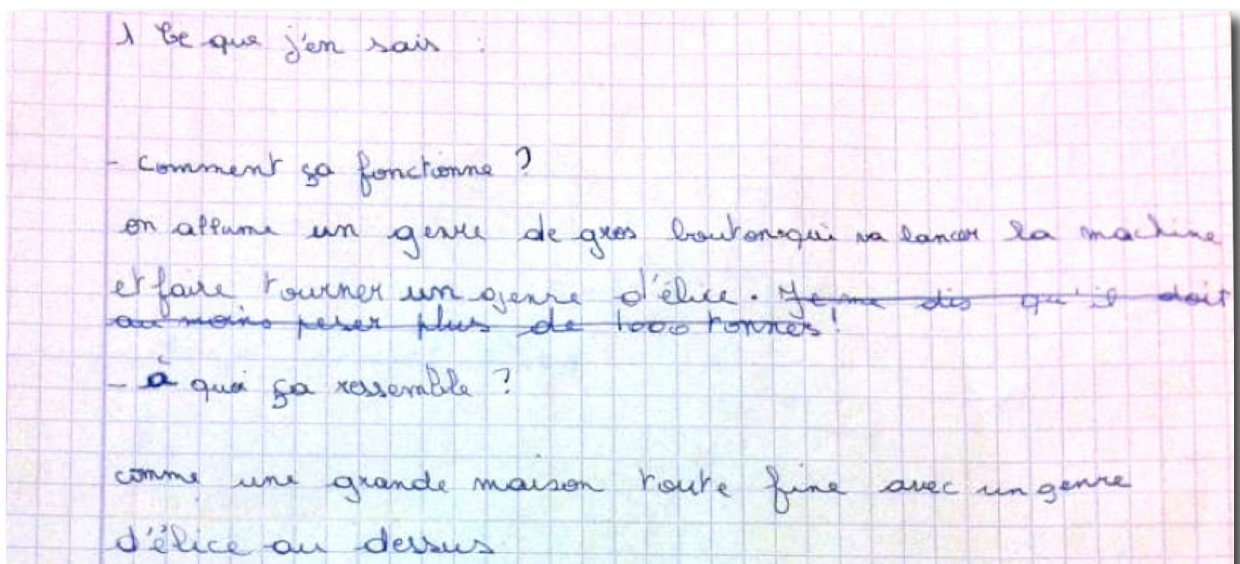 1 Ce que j'en sais :
- comment ça fonctionne ?
on allume un genre de gros bouton qui va lancer la machine
et faire tourner un genre d'élice. Je me dis qu'il doit
au moins peser plus de 1000 tonnes !
- à quoi ça ressemble ?
comme une grande maison toute fine avec un genre
d'élice au dessus